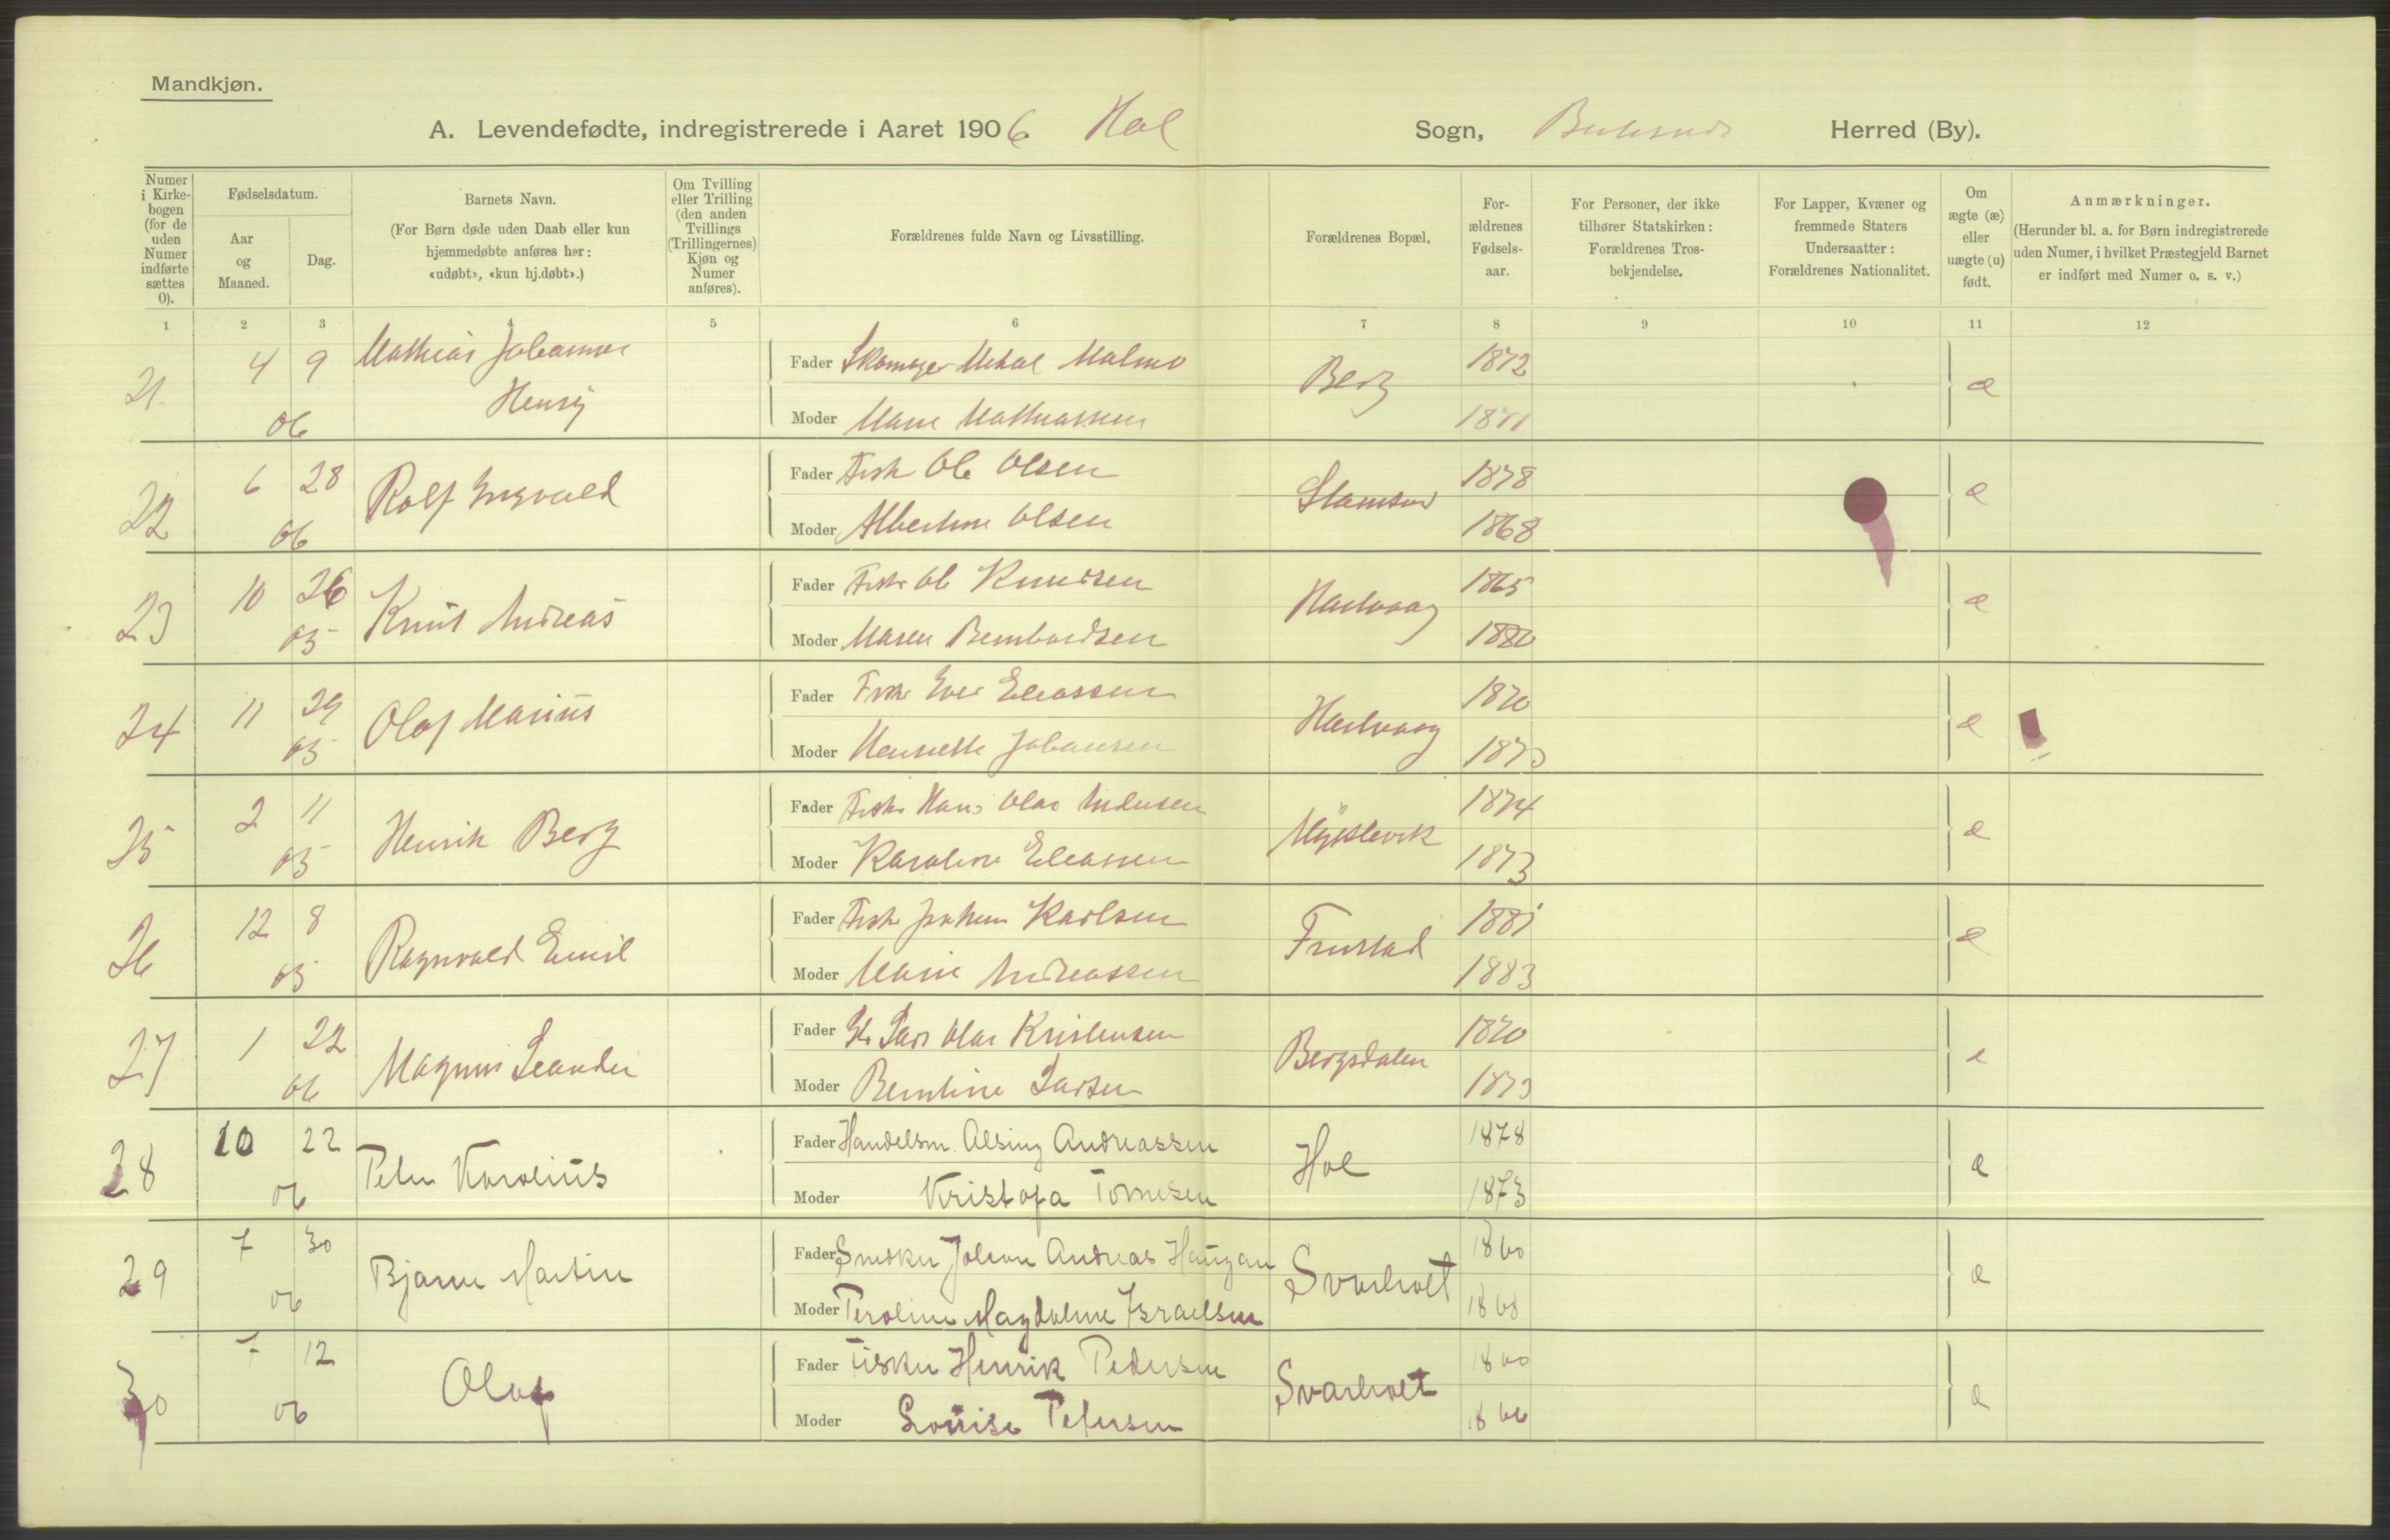 Mandkjøn.
A. Levendefødte, indregistrerede i Aaret 1906 Hol Sogn, Herred (By).
Numer i Kirke-bogen (for de uden Numer indførte sættes 0).
Fødselsdatum.
Aar og Maaned.
Dag.
Barnets Navn.
(For Børn døde uden Daab eller kun hjemmedøbte anføres her: «udøbt», «kun hj.døbt».)
Om Tvilling eller Trilling (den anden Tvillings (Trillingernes) Kjøn og Numer anføres).
Forældrenes fulde Navn og Livsstilling.
Forældrenes Bopæl,
For-ældrenes Fødsels-aar.
For Personer, der ikke tilhører Statskirken: Forældrenes Tros-bekjendelse.
For Lapper, Kvæner og fremmede Staters Undersaatter: Forældrenes Nationalitet.
Om ægte (æ) eller uægte (u) født.
Anmærkninger.
(Herunder bl. a. for Børn indregistrerede uden Numer, i hvilket Præstegjeld Barnet er indført med Numer o. s. v.)
1 2 3 4 5 6 7 8 9 10 11 12
21 4 9 Mathias Johannes Fader Skomager Mikal Malmo Berg 1872 æ
06 Henrij Moder Marie Mathiassen 1871
22 6 28 Rolf Ingvald Fader Fisk Ole Olsen Stamsund 1878 æ
06 Moder Albertine Olsen 1868
23 10 26 Knut Andreas Fader Fisker Ole Knudsen 1865 æ
05 Moder Maren Bernhardsen 1880
24 11 29 Olaf Marius Fader Fisker Iver Eliassen 1870 æ
05 Moder Henriette Johansen 1873
25 2 11 Henrik Berg Fader Fisker Hans Olai Andersen 1874 æ
05 Moder Karoline Eliassen 1873
26 12 8 Ragnvald Emil Fader Fisker Karlsen Frustad 1881 æ
05 Moder Marie Andreassen 1883
27 1 22 Magnus Leander Fader Lars Olai Kristensen Bergsdalen 1870 æ
06 Moder Berntine Larsen 1873
28 10 22 Peter Karolius Fader Handelsm. Alsing Andreassen Hol 1878 æ
06 Moder Kristofa Tomesen 1873
29 7 30 Bjarne Martin Fader Snedker Johan Andreas Haugan Svarholt 1860 æ
06 Moder Peroline Magdalene Israelsen 1868
30 7 12 Olaf Fader Fisker Henrik Pedersen Svarholt 1860 æ
06 Moder Louise Petersen 1866